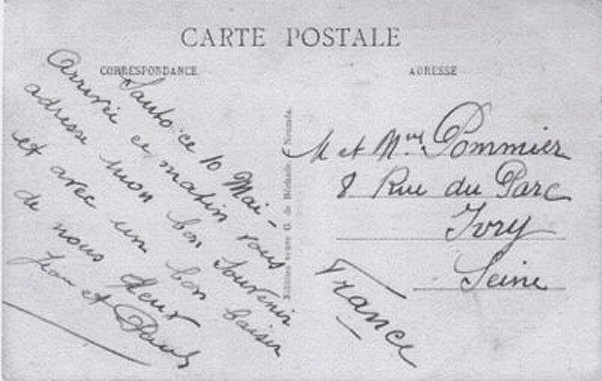 CARTE POSTALE
CORRESPONDANCE
ADRESSE
ce 10 Mai -
Arrivée ce matin vous
adresse mon bon Souvenir
et avec un bon baiser
de nous deux
Jean et
M et Mme Pommier
8 Rue du Parc
Ivry
Seine
France